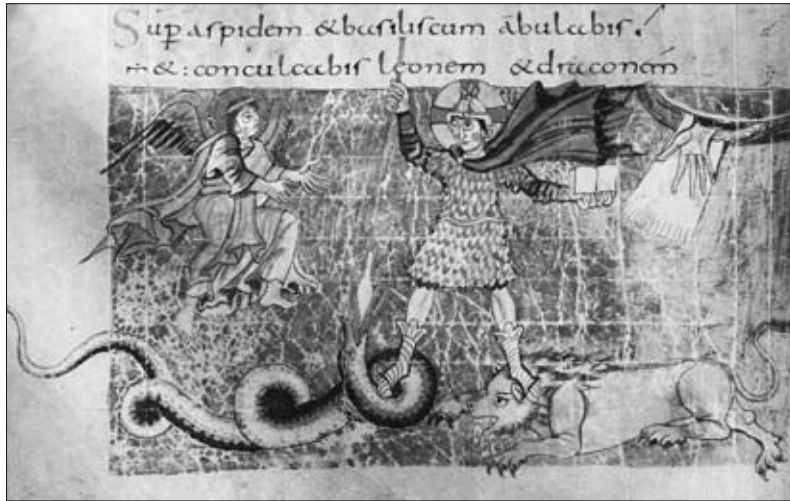 Sup̄ aspidem & basiliscum ābulabis.
& : conculcabis leonem & draconem